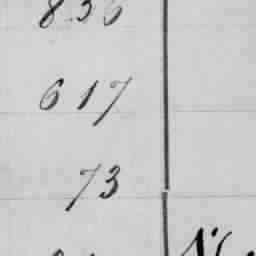 836
617
73